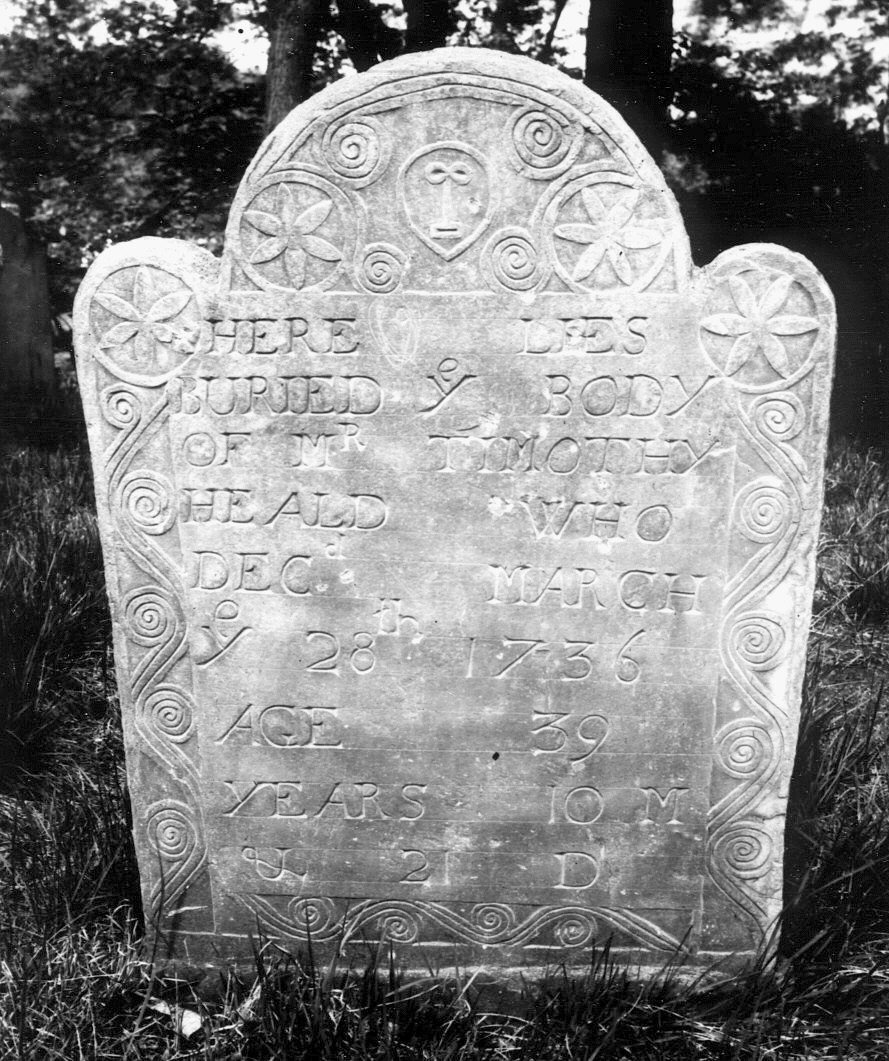 HERE LIES
BURIED yᵉ BODY
OF Mᴿ TIMOTHY
HEALD WHO
DECᵈ MARCH
yᵉ 28ᵗʰ 1736
AGE 39
YEARS 10 M
& 21 D